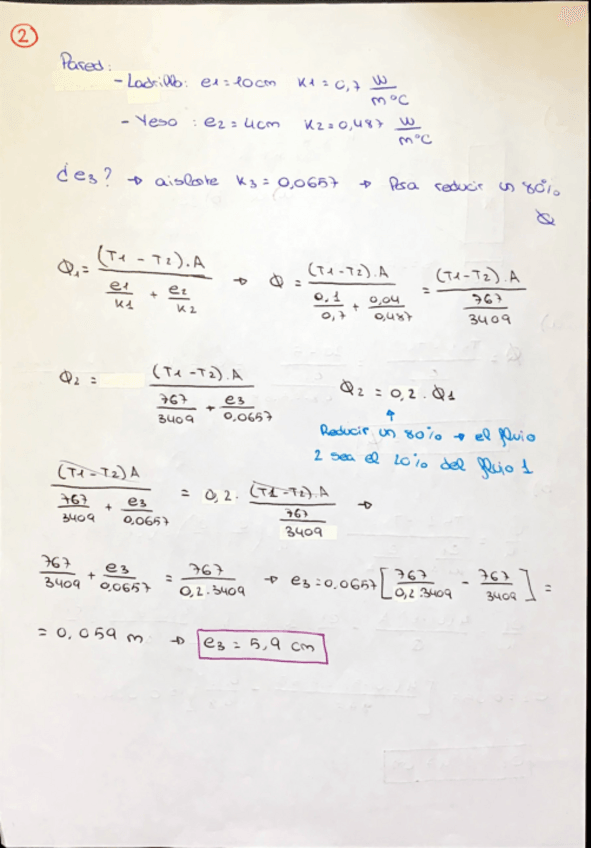 2
Pared:
- Ladrillo: e1 = 10cm K1 = 0,7 W/m°C
- Yeso : e2 = 4cm K2 = 0,487 W/m°C
¿e3? → aislante K3 = 0,0657 → Para reducir un 80% Q
Q1 = (T1 - T2).A / (e1/K1 + e2/K2) → Q = (T1-T2).A / (0,1/0,7 + 0,04/0,487) = (T1-T2).A / (767/3409)
Q2 = (T1-T2).A / (767/3409 + e3/0,0657) Q2 = 0,2 . Q1
Reducir un 80% → el flujo
2 sea el 20% del flujo 1
(T1-T2)A / (767/3409 + e3/0,0657) = 0,2 . (T1-T2).A / (767/3409) →
767/3409 + e3/0,0657 = 767/(0,2.3409) → e3 = 0,0657 [767/(0,2.3409) - 767/3409] =
= 0,059 m → e3 = 5,9 cm